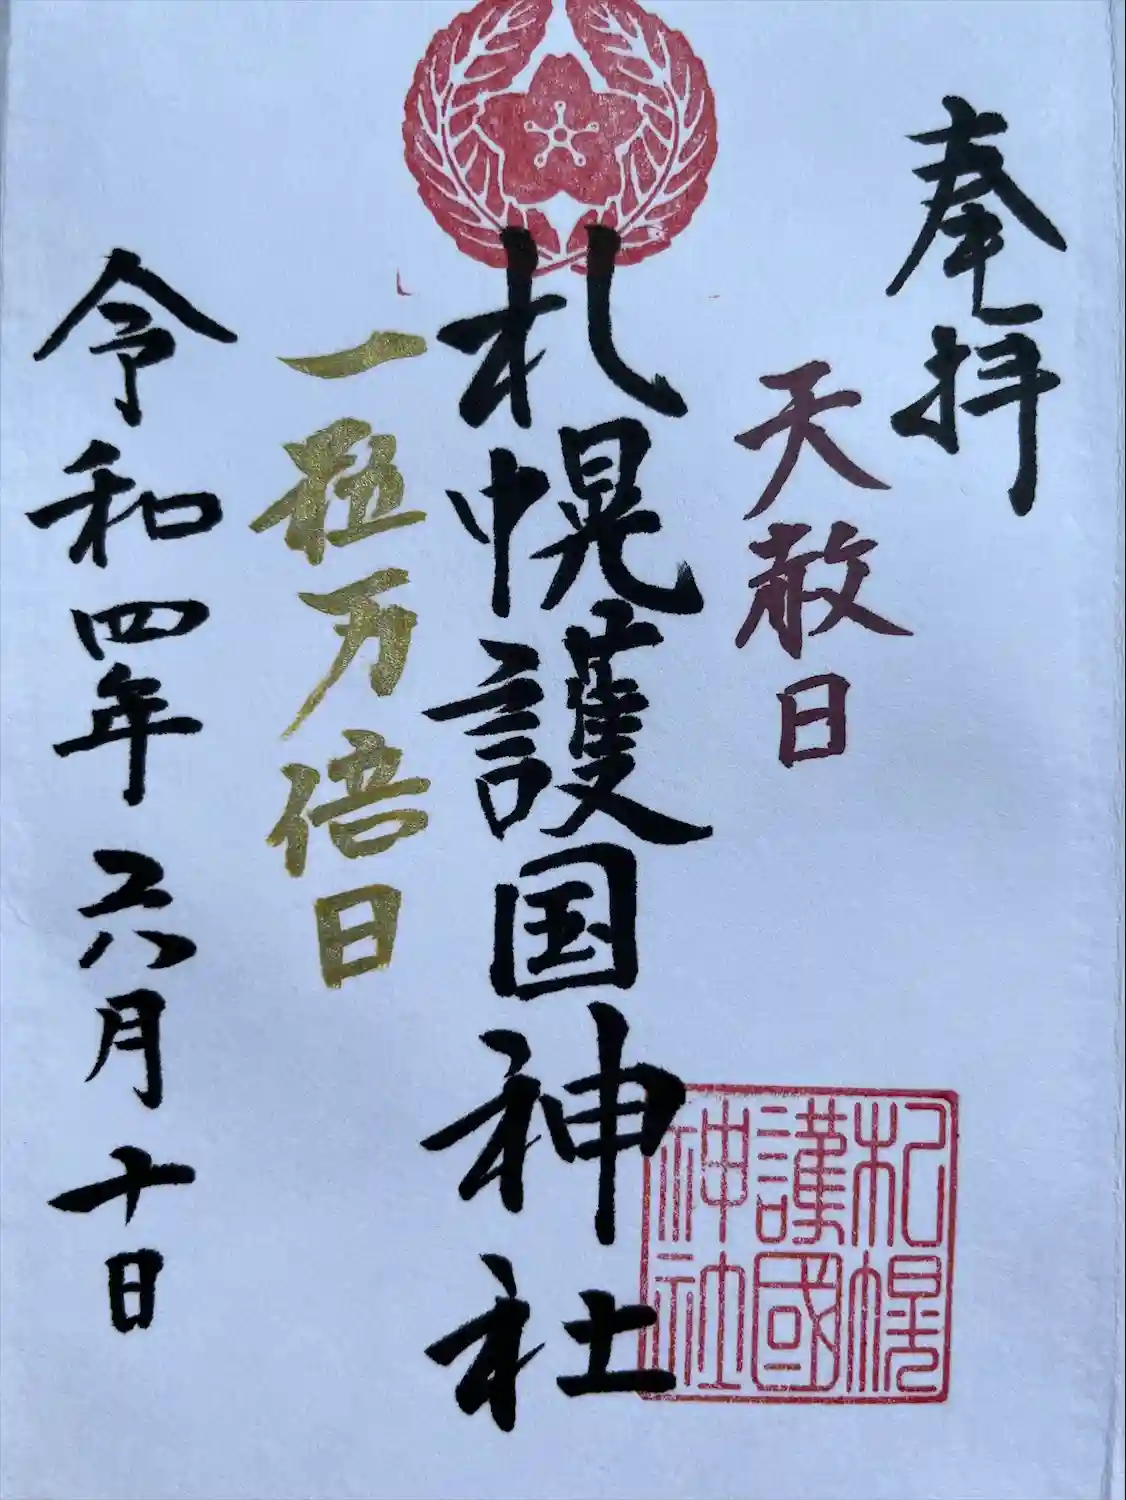 奉拝
天赦日
札幌護国神社
一粒万倍日
令和四年六月十日
札幌
護國
神社